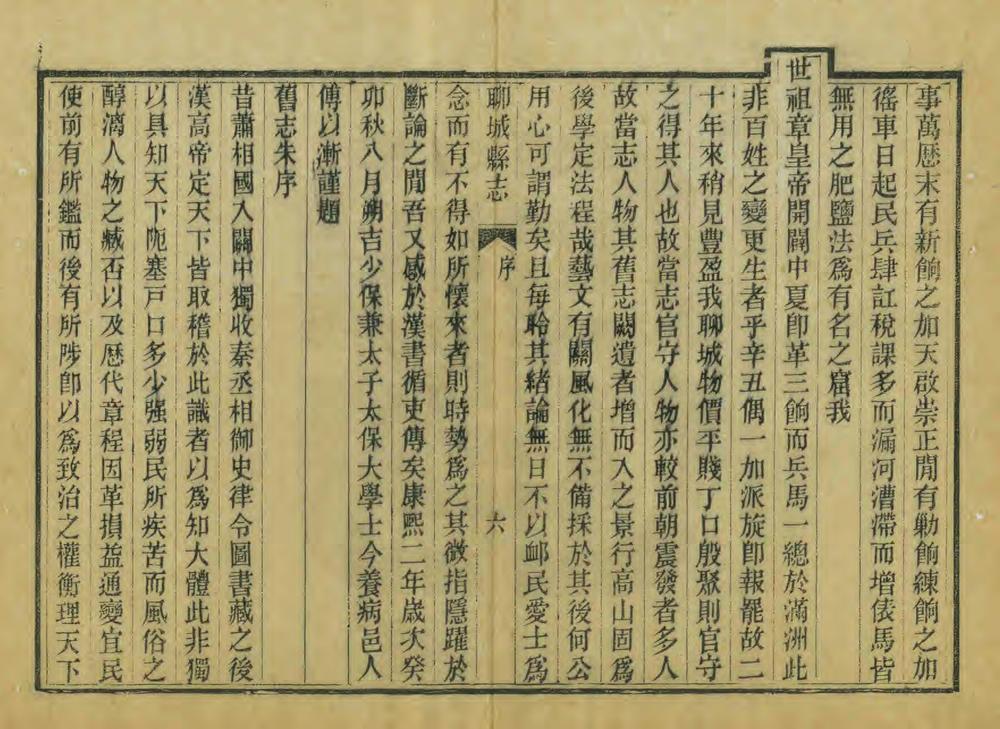 事萬歷末有新餉之加天啟崇正閒有勦餉練餉之加
徭車日起民兵肆訌稅課多而漏河漕滯而增俵馬皆
無用之肥鹽法爲有名之窟我
世祖章皇帝開闢中夏卽革三餉而兵馬一總於滿洲此
非百姓之變更生者乎辛丑偶一加派旋卽報罷故二
十年來稍見豐盈我聊城物價平賤丁口殷聚則官守
之得其人也故當志官守人物亦較前朝震發者多人
故當志人物其舊志闕遺者增而入之景行高山固爲
後學定法程哉藝文有關風化無不備採於其後何公
用心可謂勤矣且每聆其緒論無日不以卹民愛士爲
聊城縣志
序
六
念而有不得如所懷來者則時勢爲之其微指隱躍於
斷論之閒吾又感於漢書循吏傳矣康熙二年歲次癸
卯秋八月朔吉少保兼太子太保大學士今養病邑人
傅以漸謹題
舊志朱序
昔蕭相國入關中獨收秦丞相御史律令圖書藏之後
漢高帝定天下皆取稽於此識者以爲知大體此非獨
以具知天下阨塞戸口多少强弱民所疾苦而風俗之
醇漓人物之臧否以及歷代章程因革損益通變宜民
使前有所鑑而後有所陟卽以爲致治之權衡理天下